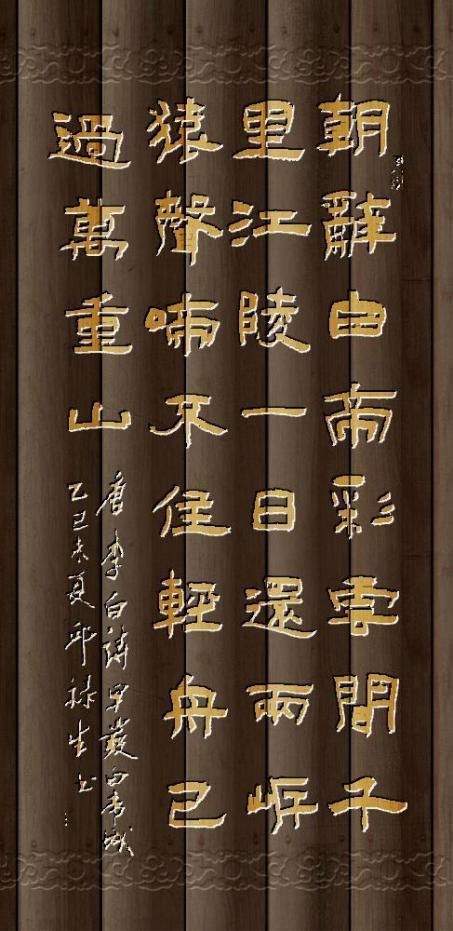 朝辭白帝彩雲間千
里江陵一日還兩岸
猿聲啼不住輕舟已
過萬重山
唐李白詩早發白帝城
乙巳末夏邱祿生书